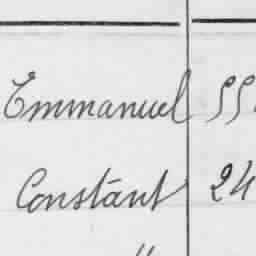 Emmanuel 55
Constant 24
"